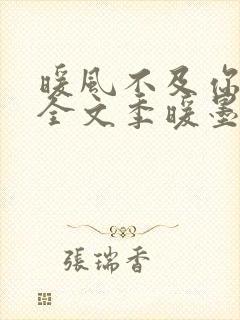 暖風不及你
全文季暖墨
張瑞香